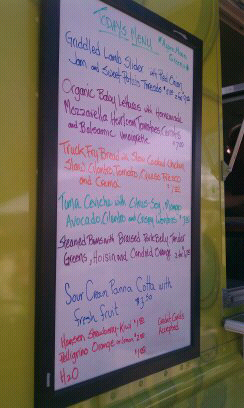 Today's Menu
Griddled Lamb Slider with Red Onion
Jam and Sweet Potato Threads
Organic Baby Lettuces with Homemade
Mozzarella Heirloom Tomatoes, Carrots
and Balsamic Vinaigrette
Truck Fry Bread with Slow Cooked Chicken
Slaw, Cilantro, Tomato, Queso Fresco
and Crema
Tuna Ceviche with Citrus-Soy, Mango
Avocado, Cilantro and Crispy
Steamed Buns with Braised Pork Belly, Tender
Greens, Hoisin and Candied Orange
Sour Cream Panna Cotta with
Fresh Fruit
Hansen Strawberry-Kiwi
Pellegrino Orange or Lemon
H2O
Credit Cards
Accepted